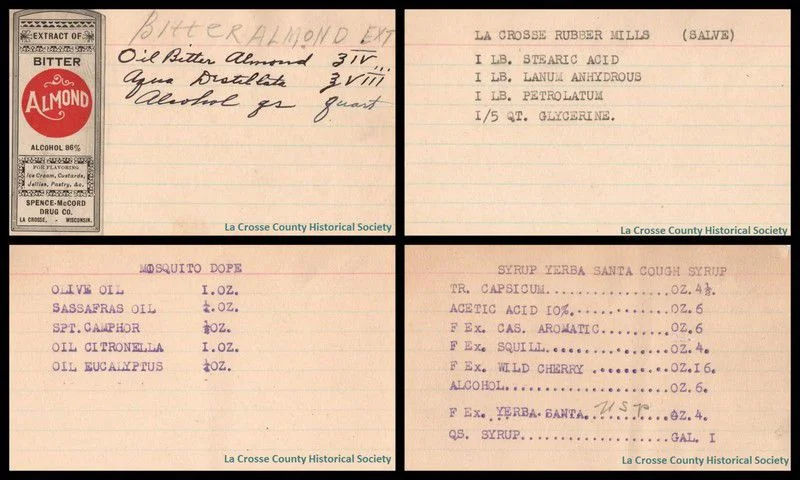 EXTRACT OF
BITTER
ALMOND
ALCOHOL 86%
FOR FLAVORING
Ice Cream, Custards,
Jellies, Pastry, &c.
SPENCE-McCORD
DRUG CO.
LA CROSSE, - WISCONSIN.
Bitter ALMOND EXT
Oil Bitter Almond ℥IV
Aqua Distillata ℥VIII
Alcohol qs quart
La Crosse County Historical Society
LA CROSSE RUBBER MILLS (SALVE)
I LB. STEARIC ACID
I LB. LANUM ANHYDROUS
I LB. PETROLATUM
I/5 QT. GLYCERINE.
La Crosse County Historical Society
MOSQUITO DOPE
OLIVE OIL I.OZ.
SASSAFRAS OIL OZ.
SPT.CAMPHOR ½OZ.
OIL CITRONELLA I.OZ.
OIL EUCALYPTUS OZ.
La Crosse County Historical Society
SYRUP YERBA SANTA COUGH SYRUP
TR. CAPSICUM...............OZ.4½.
ACETIC ACID IO%............OZ.6
F Ex. CAS. AROMATIC........OZ.6
F Ex. SQUILL...............OZ.4.
F Ex. WILD CHERRY .........OZ.I6.
ALCOHOL....................OZ.6.
F Ex. YERBA SANTA. USP OZ.4.
QS. SYRUP..................GAL. I
La Crosse County Historical Society